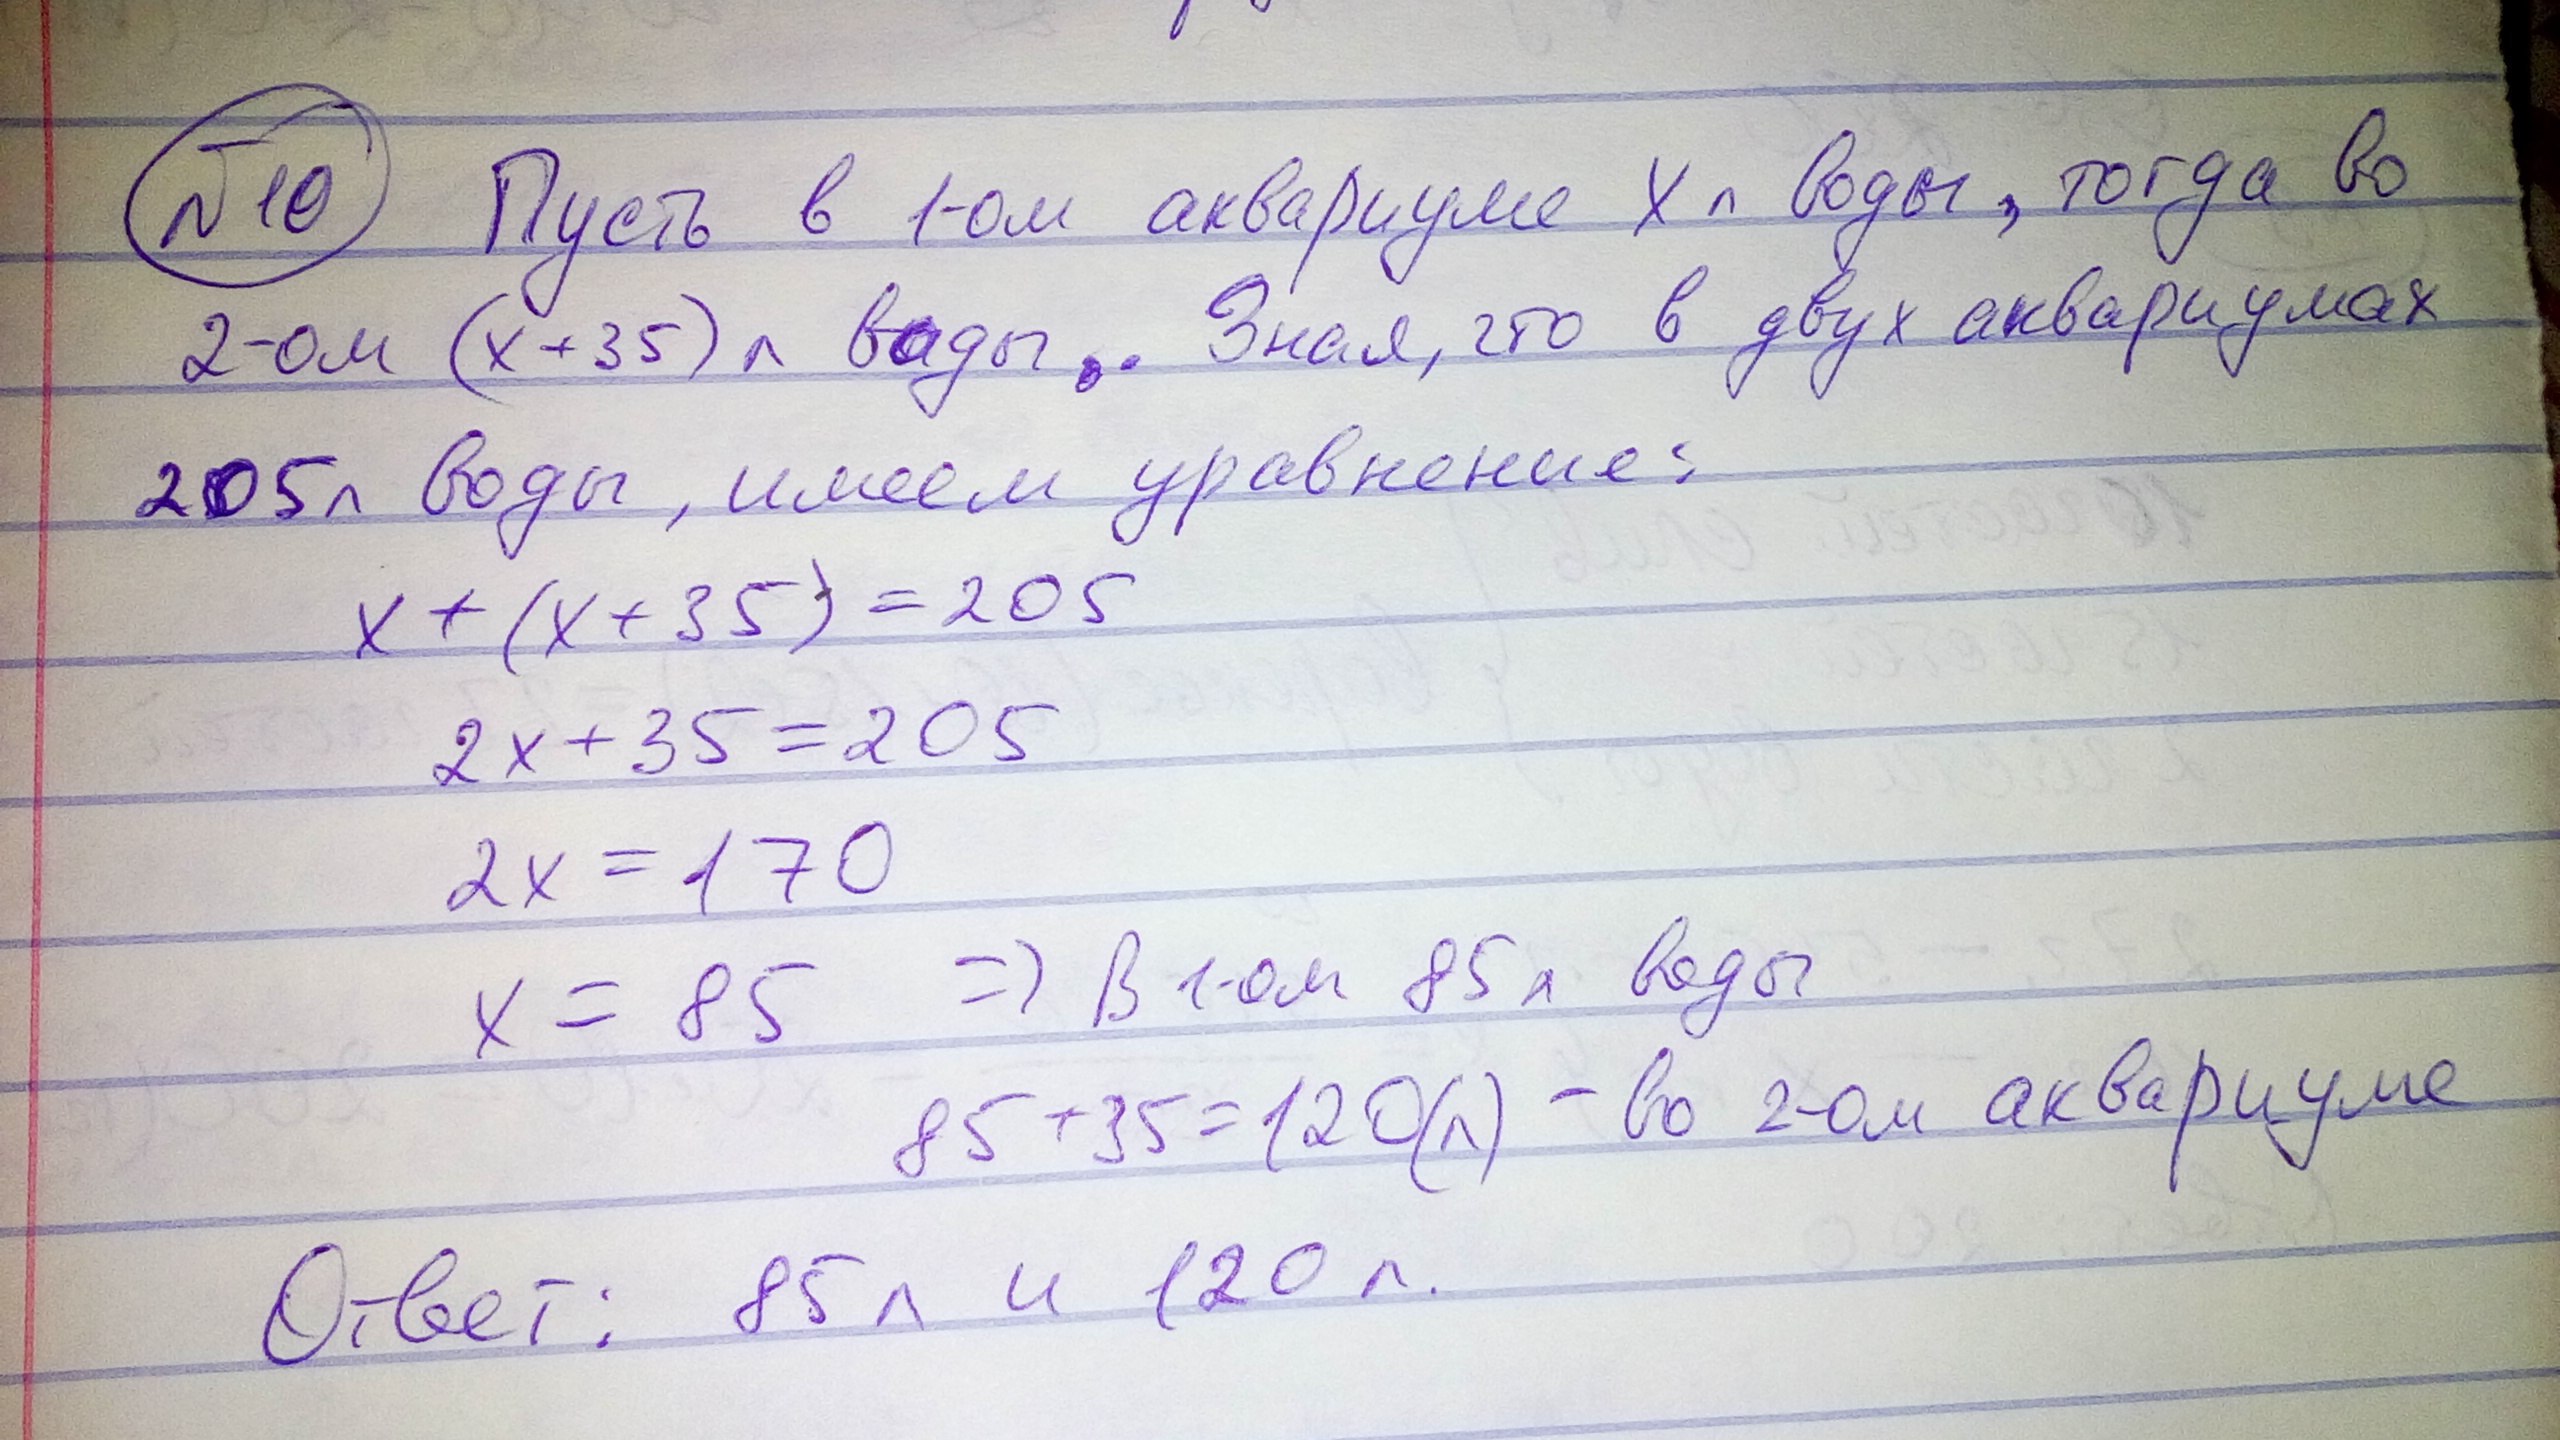 №10 Пусть в 1-ом аквариуме x л воды, тогда во
2-ом (x+35) л воды. Зная, что в двух аквариумах
205 л воды, имеем уравнение:
x + (x+35) = 205
2x+35=205
2x = 170
x = 85 => В 1-ом 85 л воды
85+35=120(л) - во 2-ом аквариуме
Ответ: 85 л и 120 л.